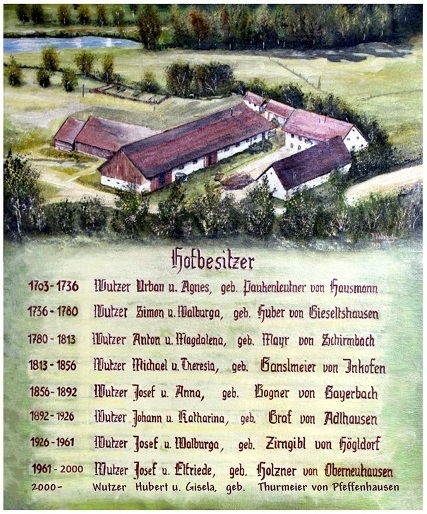 Hofbesitzer
1703-1736 Wutzer Urban u. Agnes, geb. Paukenleutner von Hausmann
1736-1780 Wutzer Simon u. Walburga, geb. Huber von Gieseltshausen
1780-1813 Wutzer Anton u. Magdalena, geb. Mayr von Schirmbach
1813-1856 Wutzer Michael u. Theresia, geb. Ganslmeier von Inkofen
1856-1892 Wutzer Josef u. Anna, geb. Bogner von Bayerbach
1892-1926 Wutzer Johann u. Katharina, geb. Graf von Adlhausen
1926-1961 Wutzer Josef u. Walburga, geb. Zirngibl von Högldorf
1961-2000 Wutzer Josef u. Elfriede, geb. Holzner von Oberneuhausen
2000- Wutzer Hubert u. Gisela, geb. Thurmeier von Pfeffenhausen